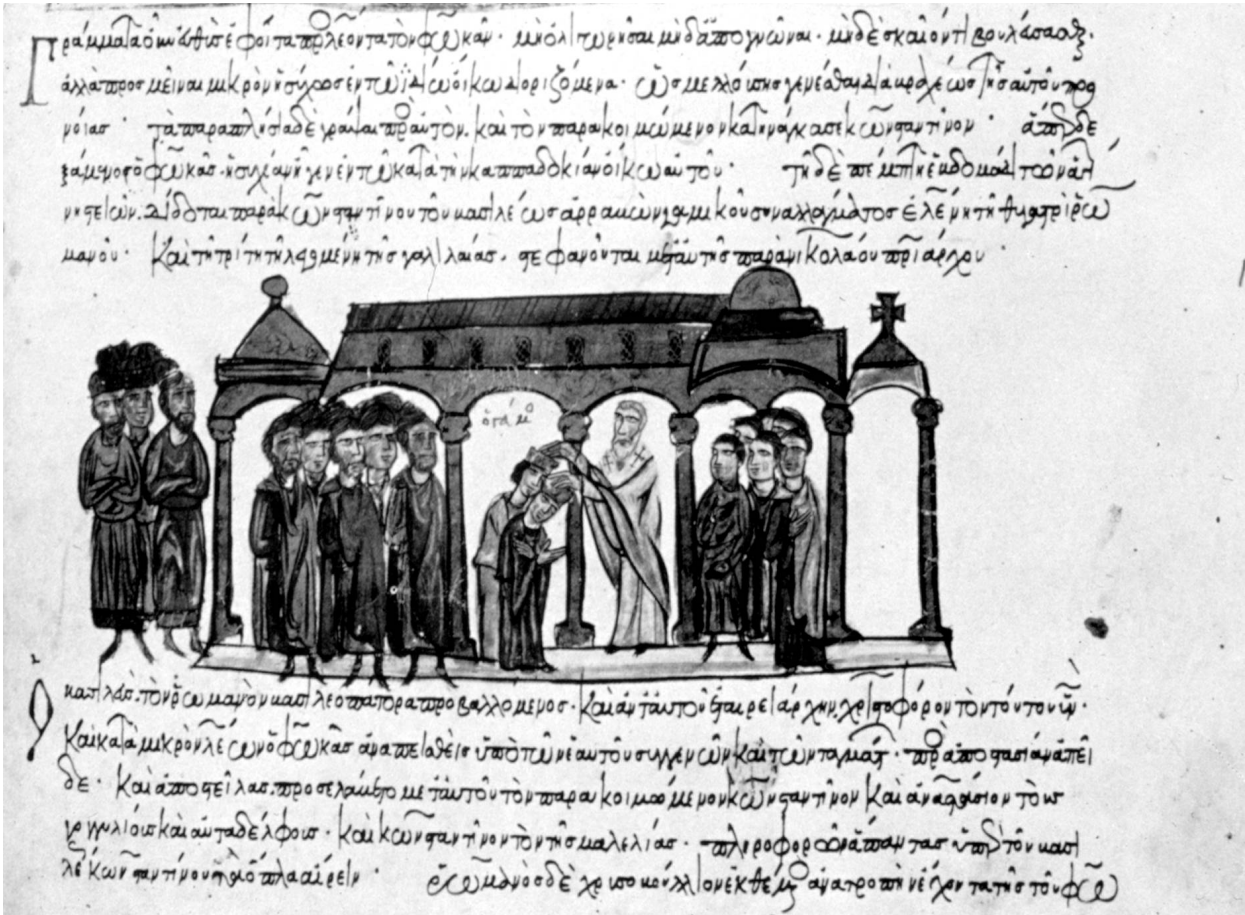 Γράμματα ἐφοίτα πρὸς λέοντα τὸν φωκᾶν. μὴ ὀλιγωρῆσαι μηδ' ἀπογνῶναι. μηδὲ σκαιόν τι βουλεύσασθαι.
ἀλλὰ προσμεῖναι μικρὸν ἡσύχως ἐν τῶ ἰδίω οἴκω διοριζόμενα. ὡς μελλούσης γενέσθαι τῆς αὐτοῦ προ
νοίας. τὰ παραπλήσια δὲ γράψαι πρὸς αὐτὸν. καὶ τὸν παρακοιμώμενον κατηνάγκασε κωνσταντῖνον. ἃ ὑποδε
ξάμενος ὁ φωκᾶς. ἡσυχίαν ἦγεν ἐν τῶ κατὰ τὴν καππαδοκίαν οἴκω αὐτοῦ. τῆ δὲ πέμπτη ἑβδομάδι τῶν
νηστειῶν. δίδοται παρὰ κωνσταντίνου τοῦ βασιλέως ἀρραβὼν γαμικοῦ συναλλάγματος ἑλένη τῆ θυγατρὶ ῥω
μανοῦ. καὶ τῆ τρίτη τῆ λεγομένη τῆς γαλιλαίας. στεφανοῦται μετ' αὐτῆς παρὰ νικολάου πατριάρχου
ὁ γάμος
Ὁ βασιλεὺς. τὸν ῥωμανὸν βασιλεοπάτορα προβαλλόμενος. καὶ ἀντ' αὐτοῦ ἑταιρειάρχην. χριστοφόρον τὸν τούτου υἱόν.
καὶ κατὰ μικρὸν λέων ὁ φωκᾶς ἀναπεισθεὶς ὑπὸ τῶν ἑαυτοῦ συγγενῶν καὶ τῶν ταγμάτων. πρὸς ἀποστασίαν ἀπεῖ
δε. καὶ ἀποστείλας. προσελάβετο μεθ' ἑαυτοῦ τὸν παρακοιμώμενον κωνσταντῖνον καὶ ἀναστάσιον τοὺς
γογγυλίους καὶ αὐταδέλφους. καὶ κωνσταντῖνον τὸν τῆς μαλελίας. πληροφορῶν ἅπαντας ὑπὲρ τοῦ βασι
λέως κωνσταντίνου τὰ ὅπλα αἴρειν. ῥωμανὸς δὲ χρυσοβούλλιον ἐκθέμενος ἀνατροπὴν ἔχοντα τῆς τοῦ φω